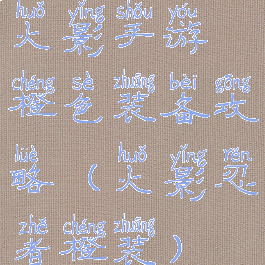 huǒ yǐng shǒu yóu
火影手游
chéng sè zhuāng bèi gōng
橙色装备攻
lüè huǒ yǐng rěn
略(火影忍
zhě chéng zhuāng
者橙装)